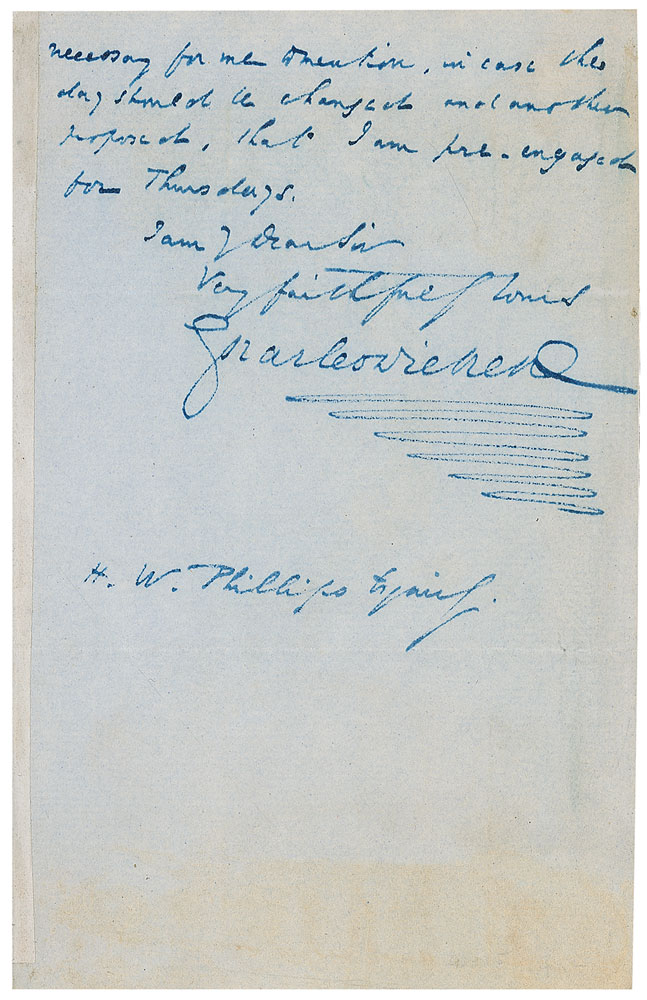 necessary for me to mention, in case the
day should be changed and another
proposed, that I am pre-engaged
for Thursdays.
I am Dear Sir
Very faithfully Yours
Charles Dickens
H. W. Phillips Esquire.